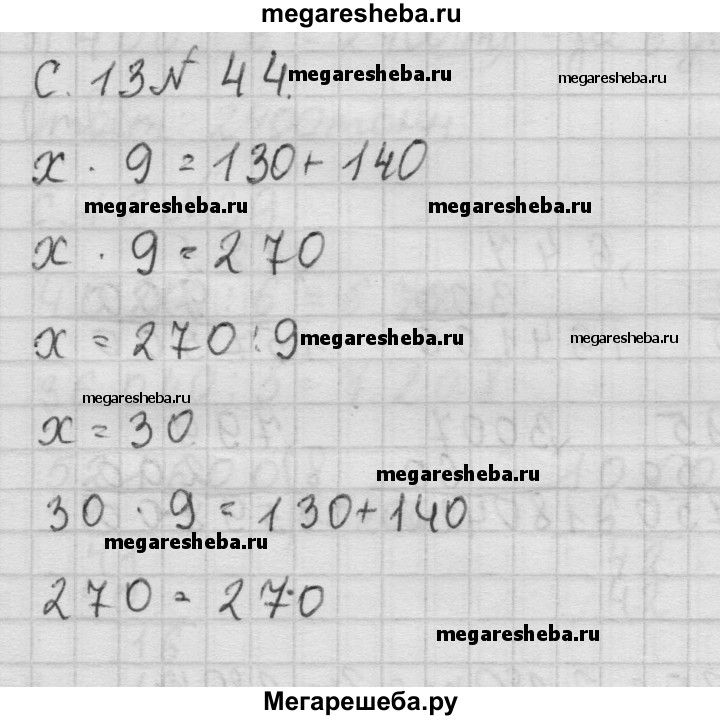 megaresheba.ru
С. 13 № 44. megaresheba.ru megaresheba.ru
x · 9 = 130 + 140
megaresheba.ru megaresheba.ru
x · 9 = 270
x = 270 : 9 megaresheba.ru megaresheba.ru
megaresheba.ru
x = 30
megaresheba.ru
30 · 9 = 130 + 140
megaresheba.ru
270 = 270
megaresheba.ru
Мегарешеба.ру